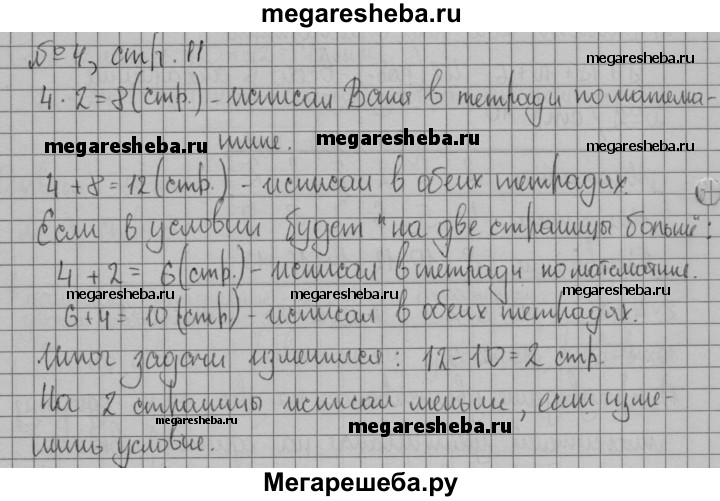 megaresheba.ru
№4, стр. 11
megaresheba.ru
4 · 2 = 8 (стр.) - исписал Ваня в тетради по матема-
megaresheba.ru
тике.
megaresheba.ru
megaresheba.ru
4 + 8 = 12 (стр.) - исписал в обеих тетрадях.
Если в условии будет "на две страницы больше":
4 + 2 = 6 (стр.) - исписал в тетради по математике.
megaresheba.ru
megaresheba.ru
megaresheba.ru
6 + 4 = 10 (стр.) - исписал в обеих тетрадях.
Итог задачи изменился: 12 - 10 = 2 стр.
На 2 страницы исписал меньше, если изме-
megaresheba.ru
нить условие.
Мегарешеба.ру